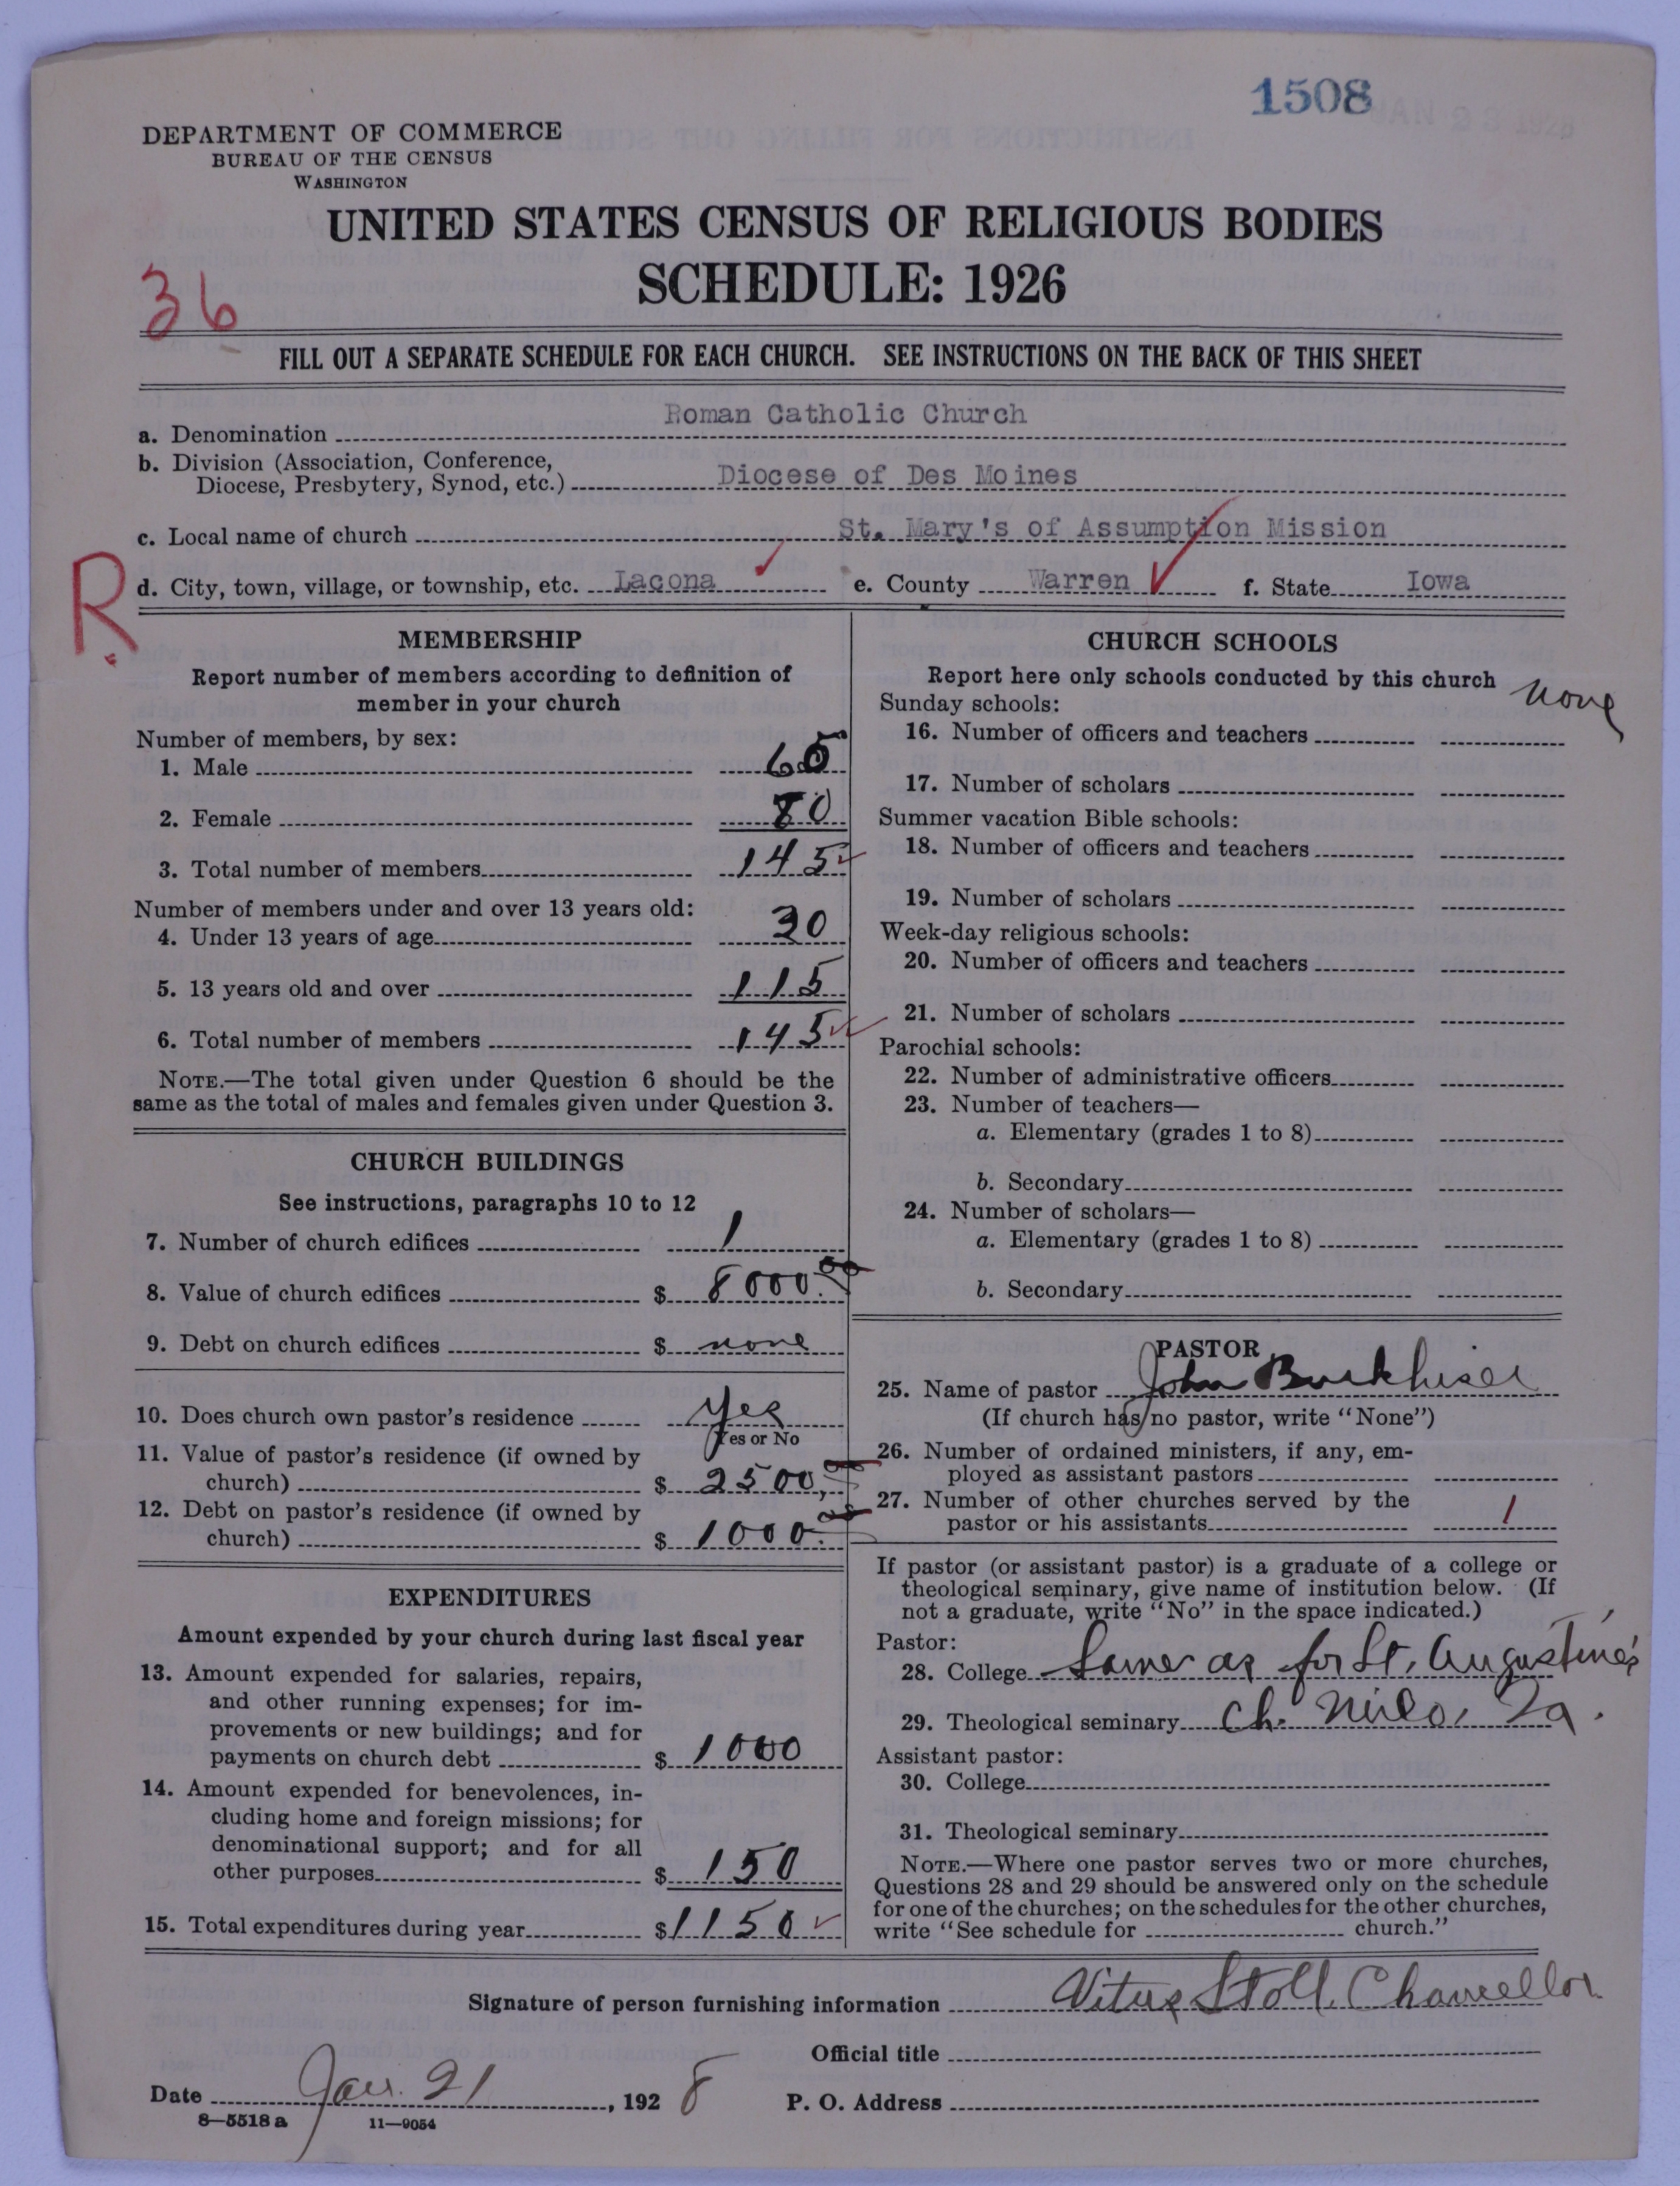 1508
JAN 23 1928
DEPARTMENT OF COMMERCE
BUREAU OF THE CENSUS
WASHINGTON
UNITED STATES CENSUS OF RELIGIOUS BODIES
SCHEDULE: 1926
36
FILL OUT A SEPARATE SCHEDULE FOR EACH CHURCH. SEE INSTRUCTIONS ON THE BACK OF THIS SHEET
a. Denomination Roman Catholic Church
b. Division (Association, Conference,
Diocese, Presbytery, Synod, etc.) Diocese of Des Moines
c. Local name of church St. Mary's of Assumption Mission
R.
d. City, town, village, or township, etc. Lacona e. County Warren f. State Iowa
MEMBERSHIP
Report number of members according to definition of
member in your church
Number of members, by sex:
1. Male 65
2. Female 80
3. Total number of members 145
Number of members under and over 13 years old:
4. Under 13 years of age 30
5. 13 years old and over 115
6. Total number of members 145
NOTE.—The total given under Question 6 should be the
same as the total of males and females given under Question 3.
CHURCH BUILDINGS
See instructions, paragraphs 10 to 12
7. Number of church edifices 1
8. Value of church edifices $ 8000.00
9. Debt on church edifices $ none
10. Does church own pastor's residence Yes
Yes or No
11. Value of pastor's residence (if owned by
church) $ 2500,00
12. Debt on pastor's residence (if owned by
church) $ 1000.00
EXPENDITURES
Amount expended by your church during last fiscal year
13. Amount expended for salaries, repairs,
and other running expenses; for im-
provements or new buildings; and for
payments on church debt $ 1000
14. Amount expended for benevolences, in-
cluding home and foreign missions; for
denominational support; and for all
other purposes $ 150
15. Total expenditures during year $ 1150
CHURCH SCHOOLS
Report here only schools conducted by this church none
Sunday schools:
16. Number of officers and teachers
17. Number of scholars
Summer vacation Bible schools:
18. Number of officers and teachers
19. Number of scholars
Week-day religious schools:
20. Number of officers and teachers
21. Number of scholars
Parochial schools:
22. Number of administrative officers
23. Number of teachers—
a. Elementary (grades 1 to 8)
b. Secondary
24. Number of scholars—
a. Elementary (grades 1 to 8)
b. Secondary
PASTOR
25. Name of pastor John Burkhiser
(If church has no pastor, write "None")
26. Number of ordained ministers, if any, em-
ployed as assistant pastors
27. Number of other churches served by the
pastor or his assistants 1
If pastor (or assistant pastor) is a graduate of a college or
theological seminary, give name of institution below. (If
not a graduate, write "No" in the space indicated.)
Pastor:
28. College Same as for St. Augustine's
29. Theological seminary Ch. Milo, Ia.
Assistant pastor:
30. College
31. Theological seminary
NOTE.—Where one pastor serves two or more churches,
Questions 28 and 29 should be answered only on the schedule
for one of the churches; on the schedules for the other churches,
write "See schedule for church."
Signature of person furnishing information Vitus Stoll, Chancellor
Official title
Date Jan. 21, 1928 P. O. Address
8—5518 a 11—9054